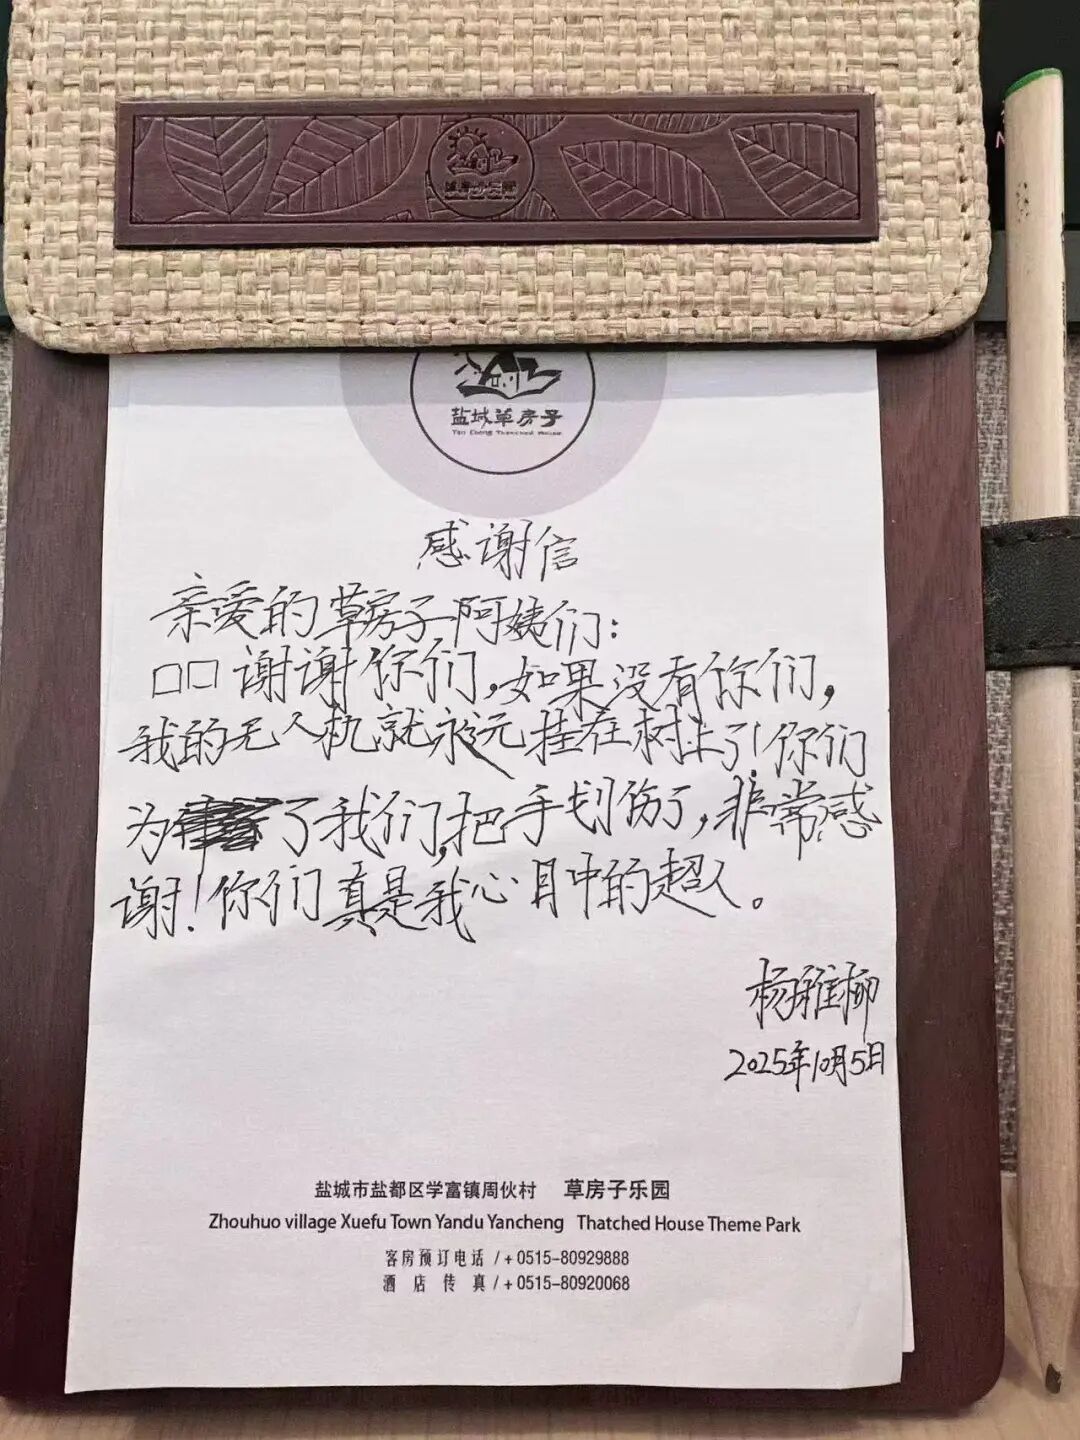 盐城草房子
Yan Cheng Thatched House
感谢信
亲爱的草房子阿姨们：
□□谢谢你们,如果没有你们,
我的无人机就永远挂在树上了!你们
为了我们,把手划伤了,非常感
谢!你们真是我心目中的超人。
杨雅柳
2025年10月5日
盐城市盐都区学富镇周伙村 草房子乐园
Zhouhuo village Xuefu Town Yandu Yancheng Thatched House Theme Park
客房预订电话/+0515-80929888
酒店传真/+0515-80920068